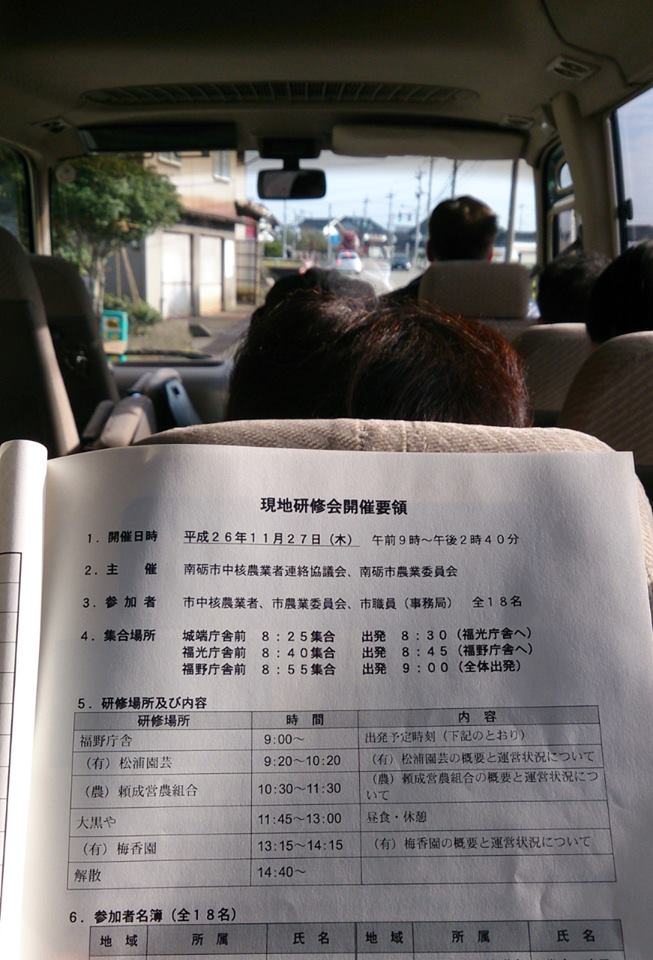 現地研修会開催要領
1．開催日時　平成２６年１１月２７日（木）　午前９時～午後２時４０分
2．主　催　南砺市中核農業者連絡協議会、南砺市農業委員会
3．参加者　市中核農業者、市農業委員会、市職員（事務局）　全１８名
4．集合場所　城端庁舎前　８：２５集合　出発　８：３０（福光庁舎へ）
福光庁舎前　８：４０集合　出発　８：４５（福野庁舎へ）
福野庁舎前　８：５５集合　出発　９：００（全体出発）
5．研修場所及び内容
研修場所　時間　内容
福野庁舎　9:00～　出発予定時刻（下記のとおり）
（有）松浦園芸　9:20～10:20　（有）松浦園芸の概要と運営状況について
（農）頼成営農組合　10:30～11:30　（農）頼成営農組合の概要と運営状況につ
いて
大黒や　11:45～13:00　昼食・休憩
（有）梅香園　13:15～14:15　（有）梅香園の概要と運営状況について
解散　14:40～
6．参加者名簿（全１８名）
地域　所属　氏名　地域　所属　氏名